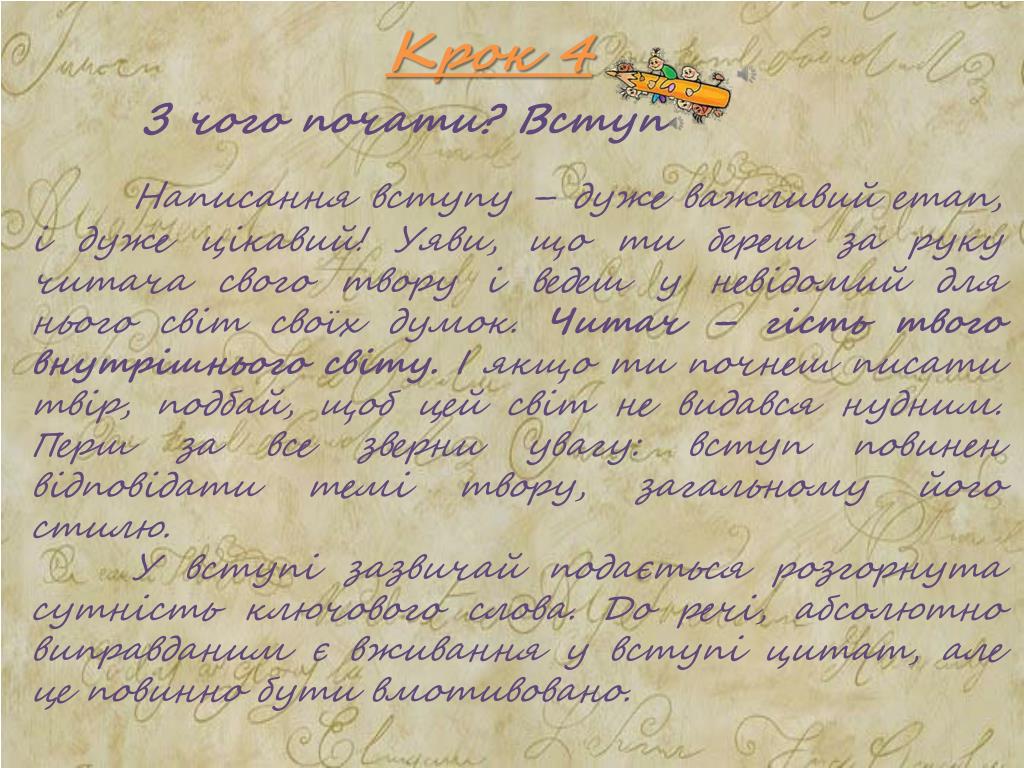 Крок 4
З чого почати? Вступ
Написання вступу – дуже важливий етап,
і дуже цікавий! Уяви, що ти береш за руку
читача свого твору і ведеш у невідомий для
нього світ своїх думок. Читач – гість твого
внутрішнього світу. І якщо ти почнеш писати
твір, подбай, щоб цей світ не видався нудним.
Перш за все зверни увагу: вступ повинен
відповідати темі твору, загальному його
стилю.
У вступі зазвичай подається розгорнута
сутність ключового слова. До речі, абсолютно
виправданим є вживання у вступі цитат, але
це повинно бути вмотивовано.